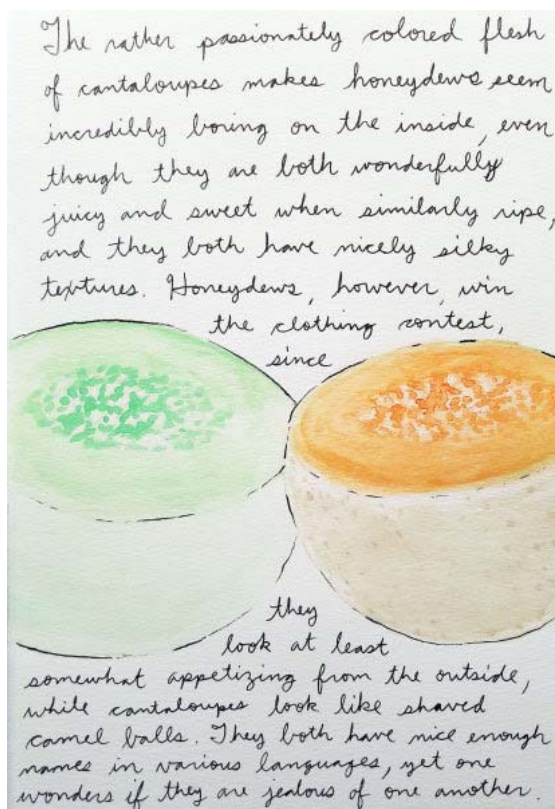 The rather passionately colored flesh
of cantaloupes makes honeydews seem
incredibly boring on the inside, even
though they are both wonderfully
juicy and sweet when similarly ripe,
and they both have nicely silky
textures. Honeydews, however, win
the clothing contest,
since
they
look at least
somewhat appetizing from the outside,
while cantaloupes look like shaved
camel balls. They both have nice enough
names in various languages, yet one
wonders if they are jealous of one another.